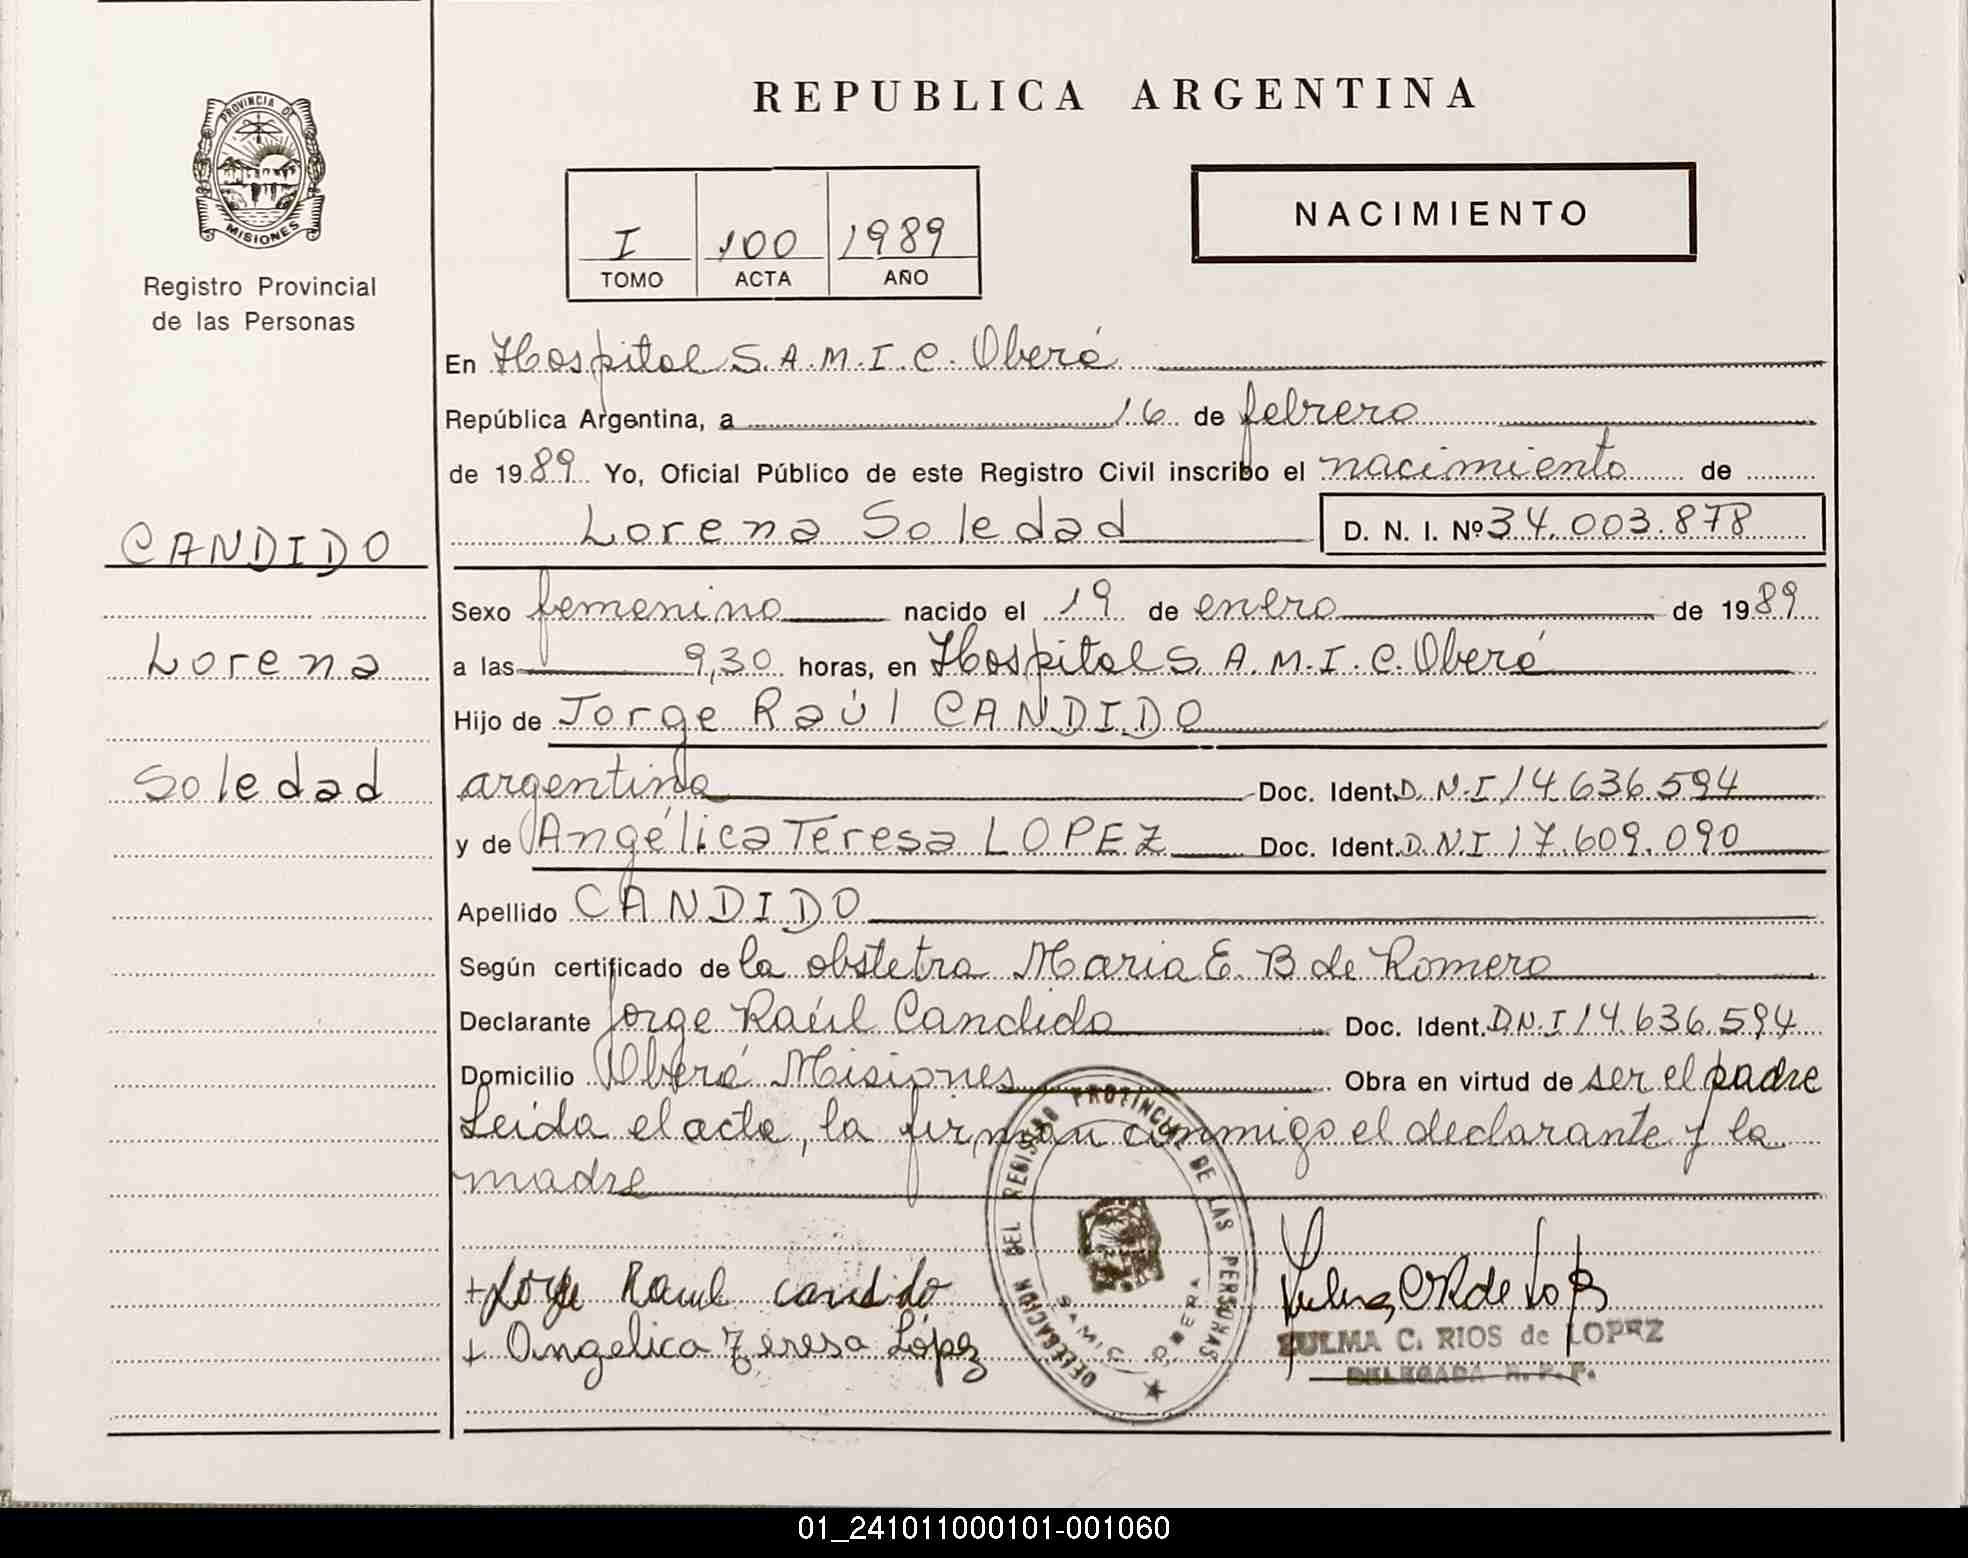 REPUBLICA ARGENTINA
PROVINCIA DE
MISIONES
Registro Provincial
de las Personas
I 100 1989
TOMO ACTA AÑO
NACIMIENTO
En Hospital S.A.M.I.C. Oberá
República Argentina, a 16 de febrero
de 1989 Yo, Oficial Público de este Registro Civil inscribo el nacimiento de
Lorena Soledad D. N. I. Nº 34.003.878
CANDIDO
Lorena
Soledad
Sexo femenino nacido el 19 de enero de 1989
a las 9,30 horas, en Hospital S.A.M.I.C. Oberá
Hijo de Jorge Raúl CANDIDO
argentino Doc. Ident. D.N.I 14.636.594
y de Angélica Teresa LOPEZ Doc. Ident. D.N.I 17.609.090
Apellido CANDIDO
Según certificado de la obstetra Maria E. B de Romero
Declarante Jorge Raúl Candido Doc. Ident. D.N.I 14.636.594
Domicilio Oberá Misiones Obra en virtud de ser el padre
Leída el acta, la firman conmigo el declarante y la
madre
DELEGACION DEL REGISTRO PROVINCIAL DE LAS PERSONAS
SAMIC OBERA
+ Jorge Raul candido
+ Angelica Teresa López
ZULMA C. RIOS de LOPEZ
DELEGADA R.P.P.
01_241011000101-001060